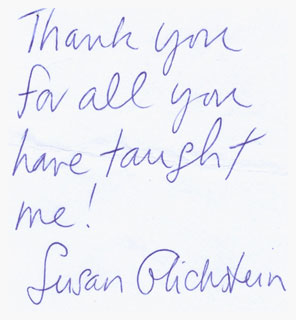 Thank you
for all you
have taught
me!
Susan Glichstein